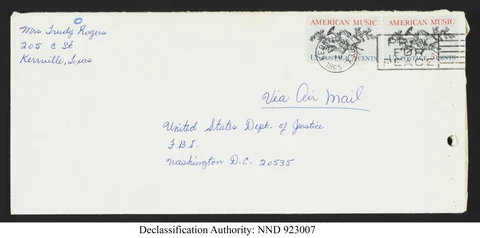 Mrs Trudy Rogers
205 C St
Kerrville, Texas
AMERICAN MUSIC
AMERICAN MUSIC
1965
PRAY
FOR
PEACE
Via Air Mail
United States Dept. of Justice
F.B.I.
Washington D.C. 20535
Declassification Authority: NND 923007